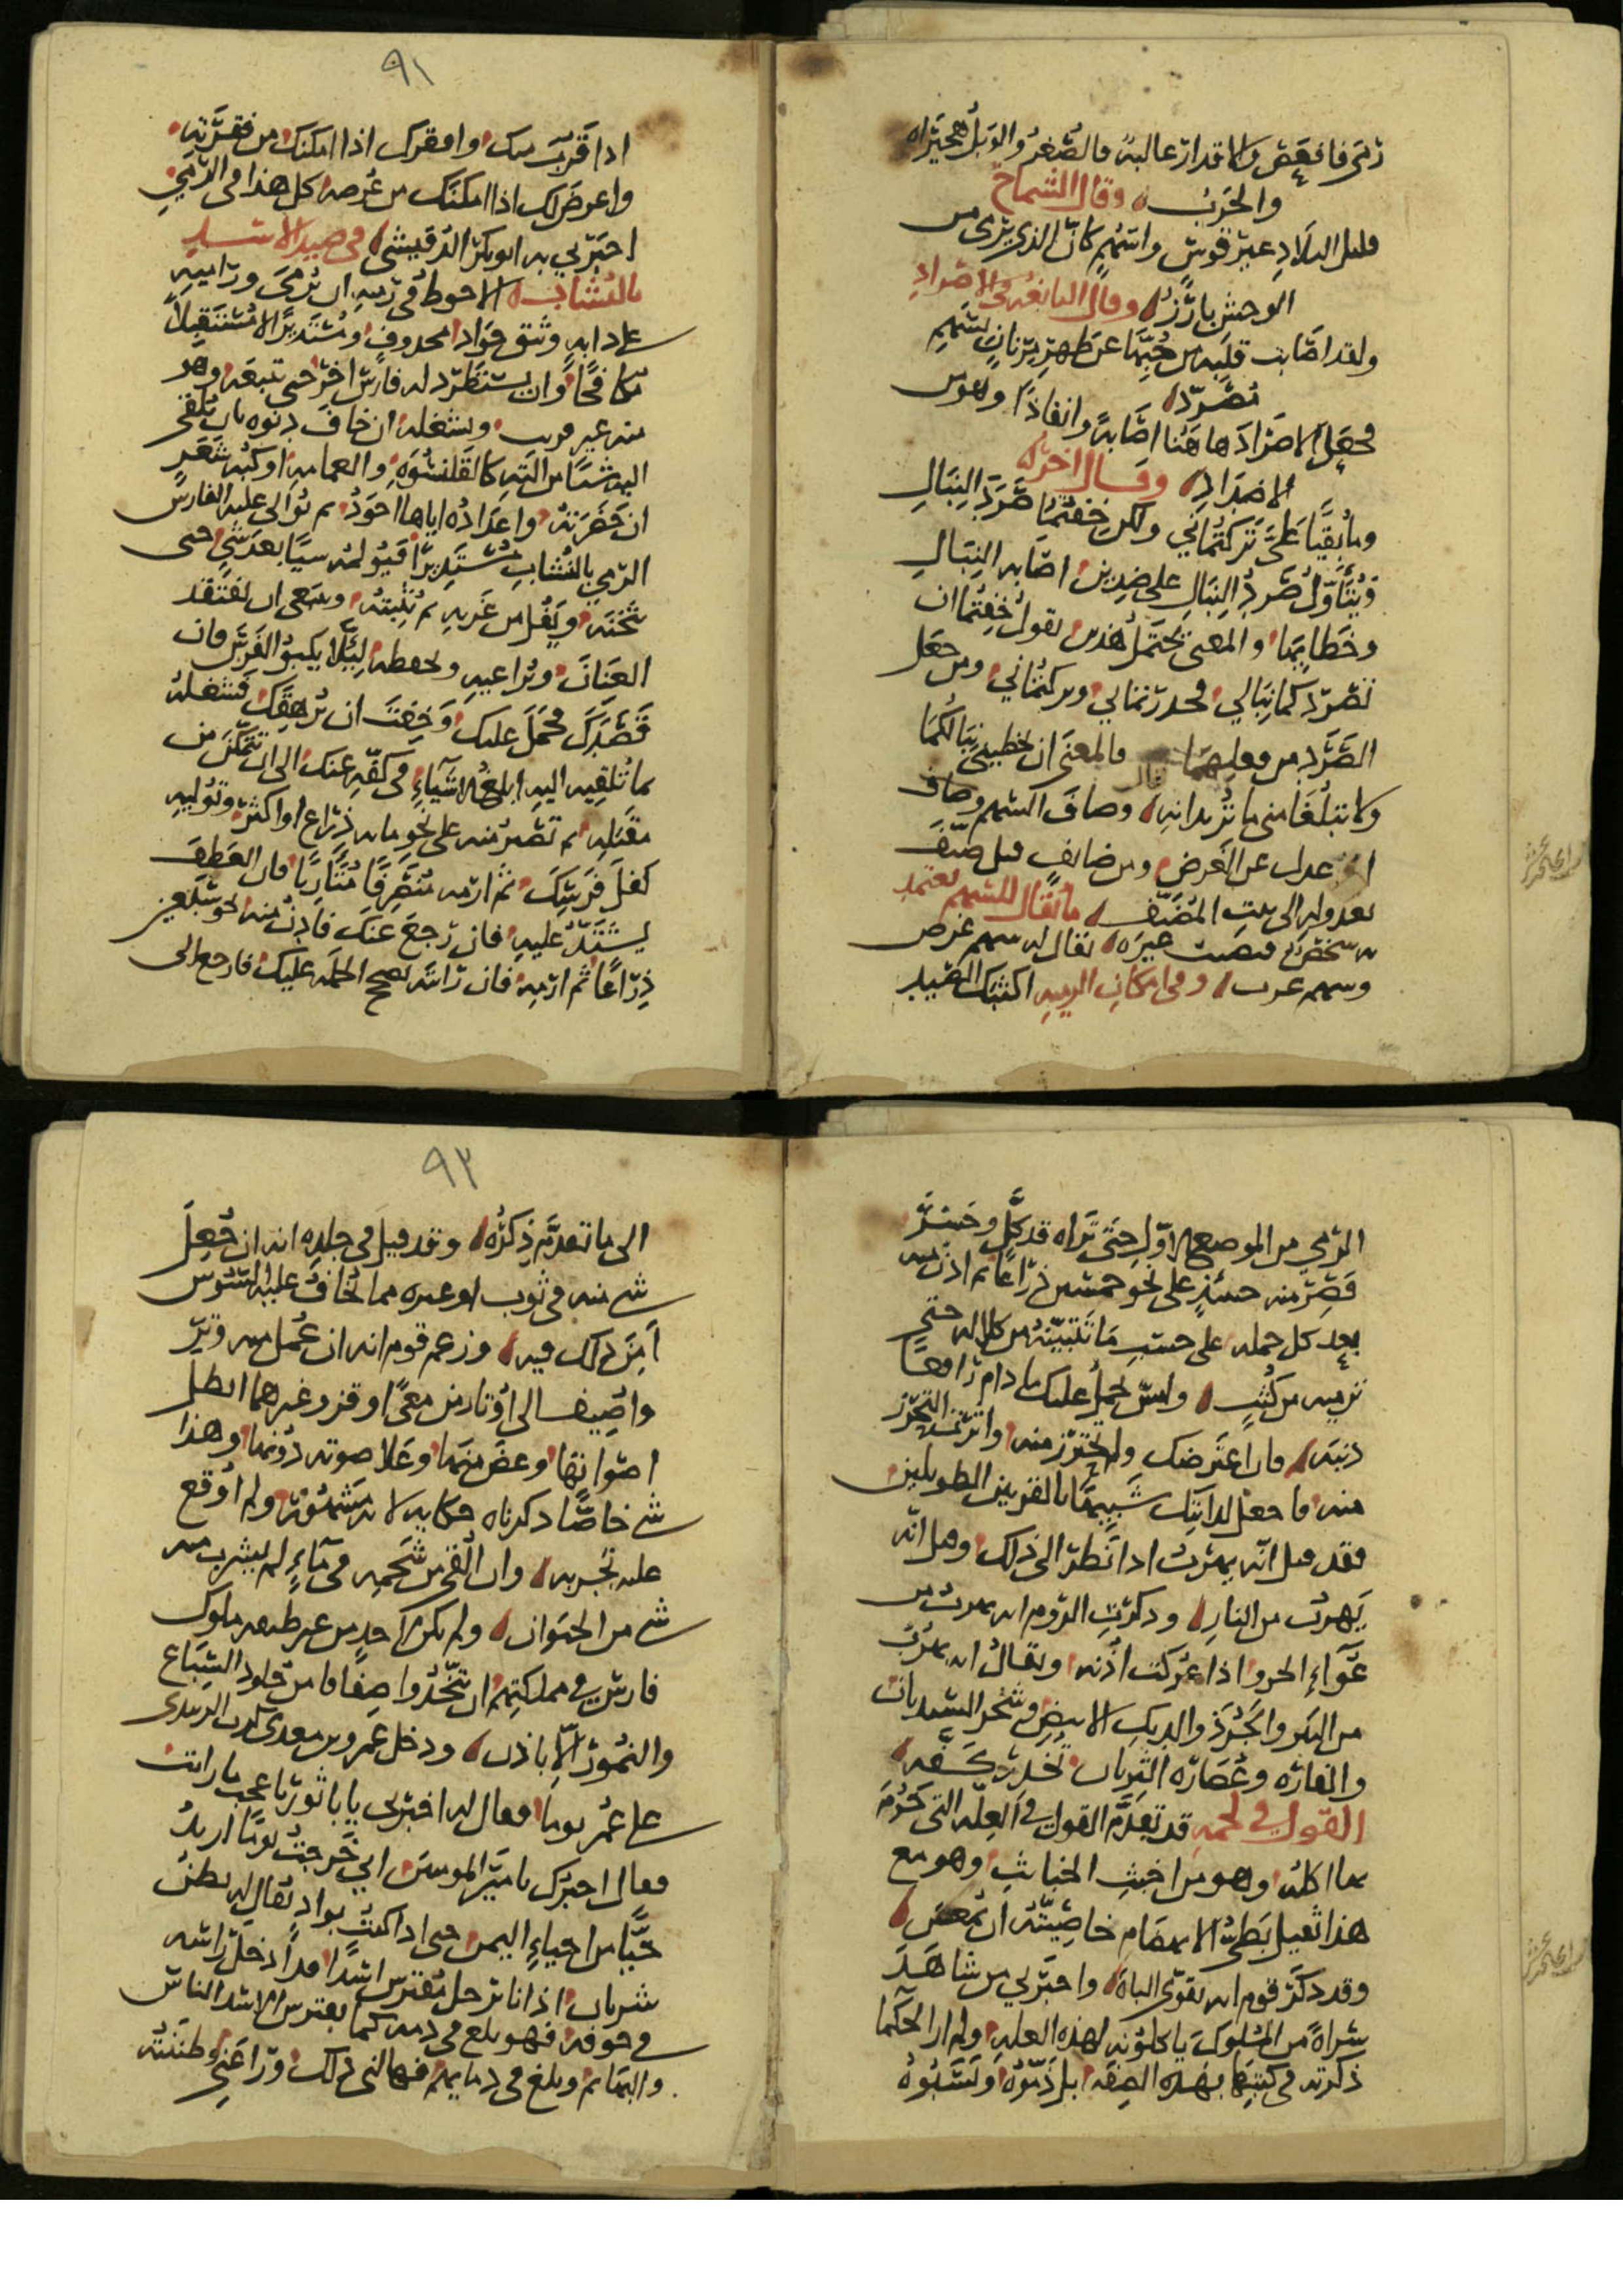 رمى فانغض والاقدار غالبة فالصغر والويل هجيراه
والحرب وقال الشماخ
قليل التلاد غير قوس واسهم كان الذي يرمى من
الوحش تارز وقال النابغة في الاصراد
ولقد اصابت قلبه من حبها عن ظهر مرنان بسهم
مصرد
فجعل الاصراد هاهنا اصابة وانفاذا وهو من
الاضداد وقال اخر
وما بقيا علي تركتماني ولكن خفتما صرد النبال
ويتاول صرد النبال على ضدين اصابه النبال
وخطا بها والمعنى يحتمل هذين يقول خفتما ان
تصرد كما نبالي فحدرتماني وتركتماني ومن جعل
الصرد من فعلهما فالمعنى ان تخطيني نبالكما
ولا تبلغا مني ما تريدانه وصاف السهم وضاف
اذ عدل عن الغرض ومن ضايف قيل ضيف
لعدوله الى بيت المضيف ما يقال للسهم يعتمد
به شخص فيصيب غيره يقال له سهم غرض
وسهم غرب وفي امكان الرميه اكثبك الصيد
٩١
اذا قرب منك وافقرك اذا امكنك من فقرته
واعرض لك اذا امكنك من عرضه كل هذا في الرمي
اخبرني به ابو بكر الدقيشي في صيد الاسد
بالنشاب الاحوط في رميه ان يرمى وراميه
على دابه وثق جواد محذوف ومستدبرا لا مستقبلا
مكافحا وان يستطرد له فارس اخر حتى تتبعه وهو
منه غير قريب ويشغله ان خاف دنوه بان يلقى
اليه شيئا من آلته كالقلنسوه والعمامه او كبه شعر
ان حضرته واعداده اياها احود ثم توالى عليه الفارس
الرمي بالنشاب مستدبرا فيولمه سيا بعد شي حتى
يثخنه ويفل من غربه ثم يثبته وينبغي ان تفتقد
العنان وتراعيه وتحفظه ليلا يكبو الفرس فان
قصدك فحمل عليك وخفت ان يرهقك فشغله
بما تلقيه اليه ابلغ الاشياء في كفه عنك الى ان تتمكن من
مقتله ثم تصير منه على نحو مايه ذراع او اكثر وتوليه
كفل فرسك ثم ارمه منصرفا متاريا فان العطف
يشتد عليه فان رجع عنك فادن منه نحو سبعين
ذراعا ثم ارمه فان رايته يصحح الحمله عليك فارجع الى
الرمي من الموضع الاول حتى تراه قد كل وخسر
فصر منه حينئذ على نحو خمسين ذراعا ثم ادن منه
بعد كل حمله على حسب ما تتبينه من كلاله حتى
ترميه من كثب وليس يحمل عليك ما دام رافعا
ذنبه فان اعترضك ولم يحترز منه واثرت التحرز
منه فاجعل لدابتك شبيها بالقرنين الطويلين
فقد قيل انه يهرب اذا نظر الى ذلك وقيل انه
يهرب من النار وذكرت الروم انه يهرب من
عواء الجرو اذا عركت اذنه ويقال انه يهرب
من الهر والجرذ والديك الابيض وشجر السنديان
والفاره وعصاره الثربان تخدر كفه
القول في لحمه قد تقدم القول في العله التي حرم
بها اكله وهو من اخبث الخبائث وهو مع
هذا ثقيل بطئ الانهضام خاصيته ان يمغص
وقد ذكر قوم انه يقوي الباه واخبرني من شاهد
سراة من الملوك ياكلونه لهذه العله ولم ار الحكما
ذكرته في كتبها بهذه الصفه بل ذموه ونسبوه
٩٣
الى ما تقدم ذكره وقد قيل في جلده انه ان جعل
شي منه في ثوب او غيره مما يخاف عليه السوس
امن ذلك فيه وزعم قوم انه ان عمل منه وتر
واضيف الى اوتار من معى او قز وغيرهما ابطل
اصواتها وغض منها وعلا صوته دونها وهذا
شي خاصا ذكرناه حكايه لانه مشهور ولم اوقع
عليه تجربه وان القي من شحمه في ماء لم يشرب منه
شي من الحيوان ولم يكن لاحد من غير طبقه ملوك
فارس في مملكتهم ان يتخذوا صفافا من جلود السباع
والنمور الا باذن ودخل عمرو بن معدي كرب الزبيدي
على عمر يوما فقال له اخبرني يا با ثور باعجب ما رايت
فقال اخبرك يا امير المومنين اني خرجت يوما اريد
حيا من احياء اليمن حتى اذا كنت بواد يقال له بطن
شربان اذ انا برجل مفترس اسدا مدا دخل راسه
في جوفه فهو يلغ في دمه كما يفترس الاسد الناس
والبهائم ويلغ في دمايهم فهالني ذلك وراعني وظننته